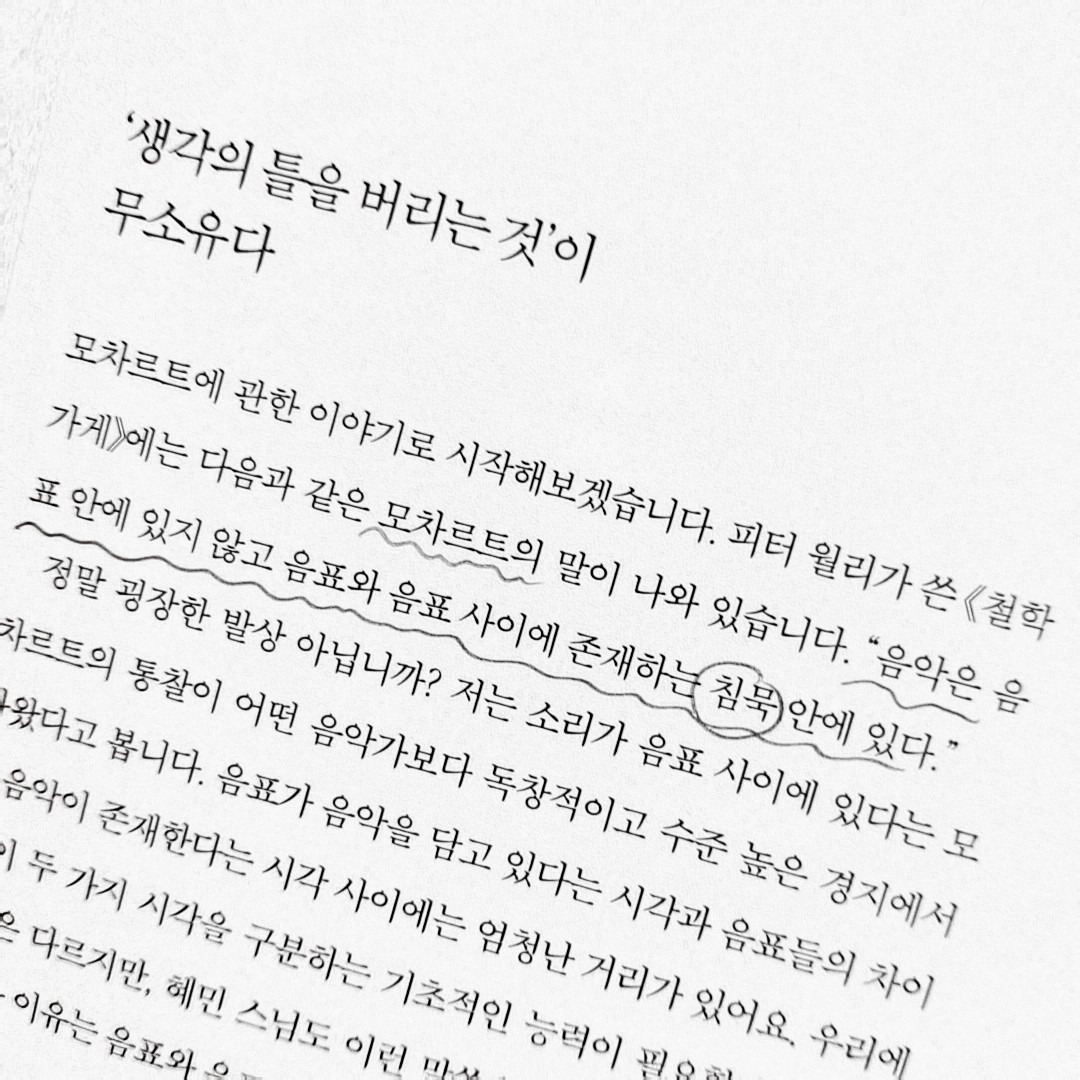 ‘생각의 틀을 버리는 것’이
무소유다
모차르트에 관한 이야기로 시작해보겠습니다. 피터 월리가 쓴 《철학
가게》에는 다음과 같은 모차르트의 말이 나와 있습니다. “음악은 음
표 안에 있지 않고 음표와 음표 사이에 존재하는 침묵 안에 있다.”
정말 굉장한 발상 아닙니까? 저는 소리가 음표 사이에 있다는 모
차르트의 통찰이 어떤 음악가보다 독창적이고 수준 높은 경지에서
왔다고 봅니다. 음표가 음악을 담고 있다는 시각과 음표들의 차이
음악이 존재한다는 시각 사이에는 엄청난 거리가 있어요. 우리에
이 두 가지 시각을 구분하는 기초적인 능력이
은 다르지만, 혜민 스님도 이런
이유는 음표와